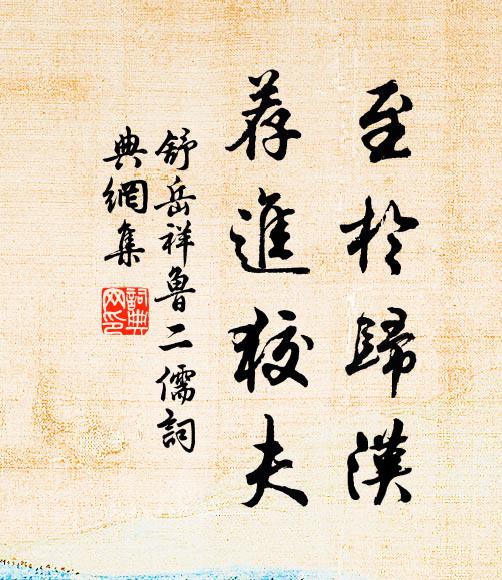 至於歸漢
荐進狡夫
舒岳祥魯二儒詞
典網集
詞典
网印